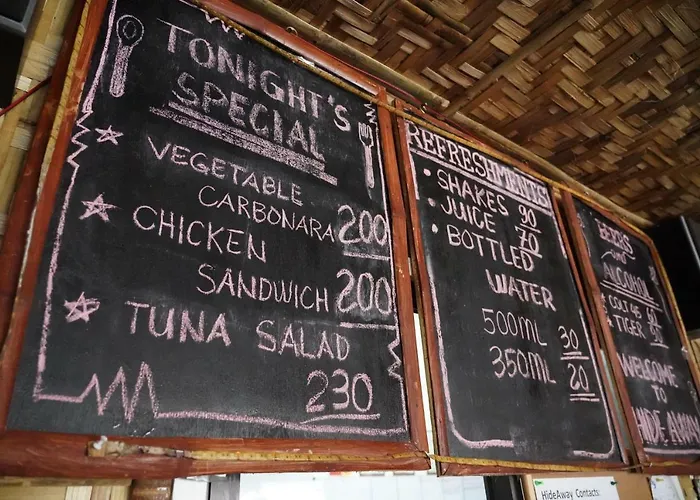 TONIGHT'S
SPECIAL
VEGETABLE
CARBONARA 200
CHICKEN
SANDWICH 200
TUNA SALAD
230
REFRESHMENTS
SHAKES 90
JUICE 70
BOTTLED
WATER
500ML 30
350ML 20
BEERS
AND
ALCOHOL
COLT 45
TIGER
WELCOME
TO
HIDE AWAY
HideAway Contacts: